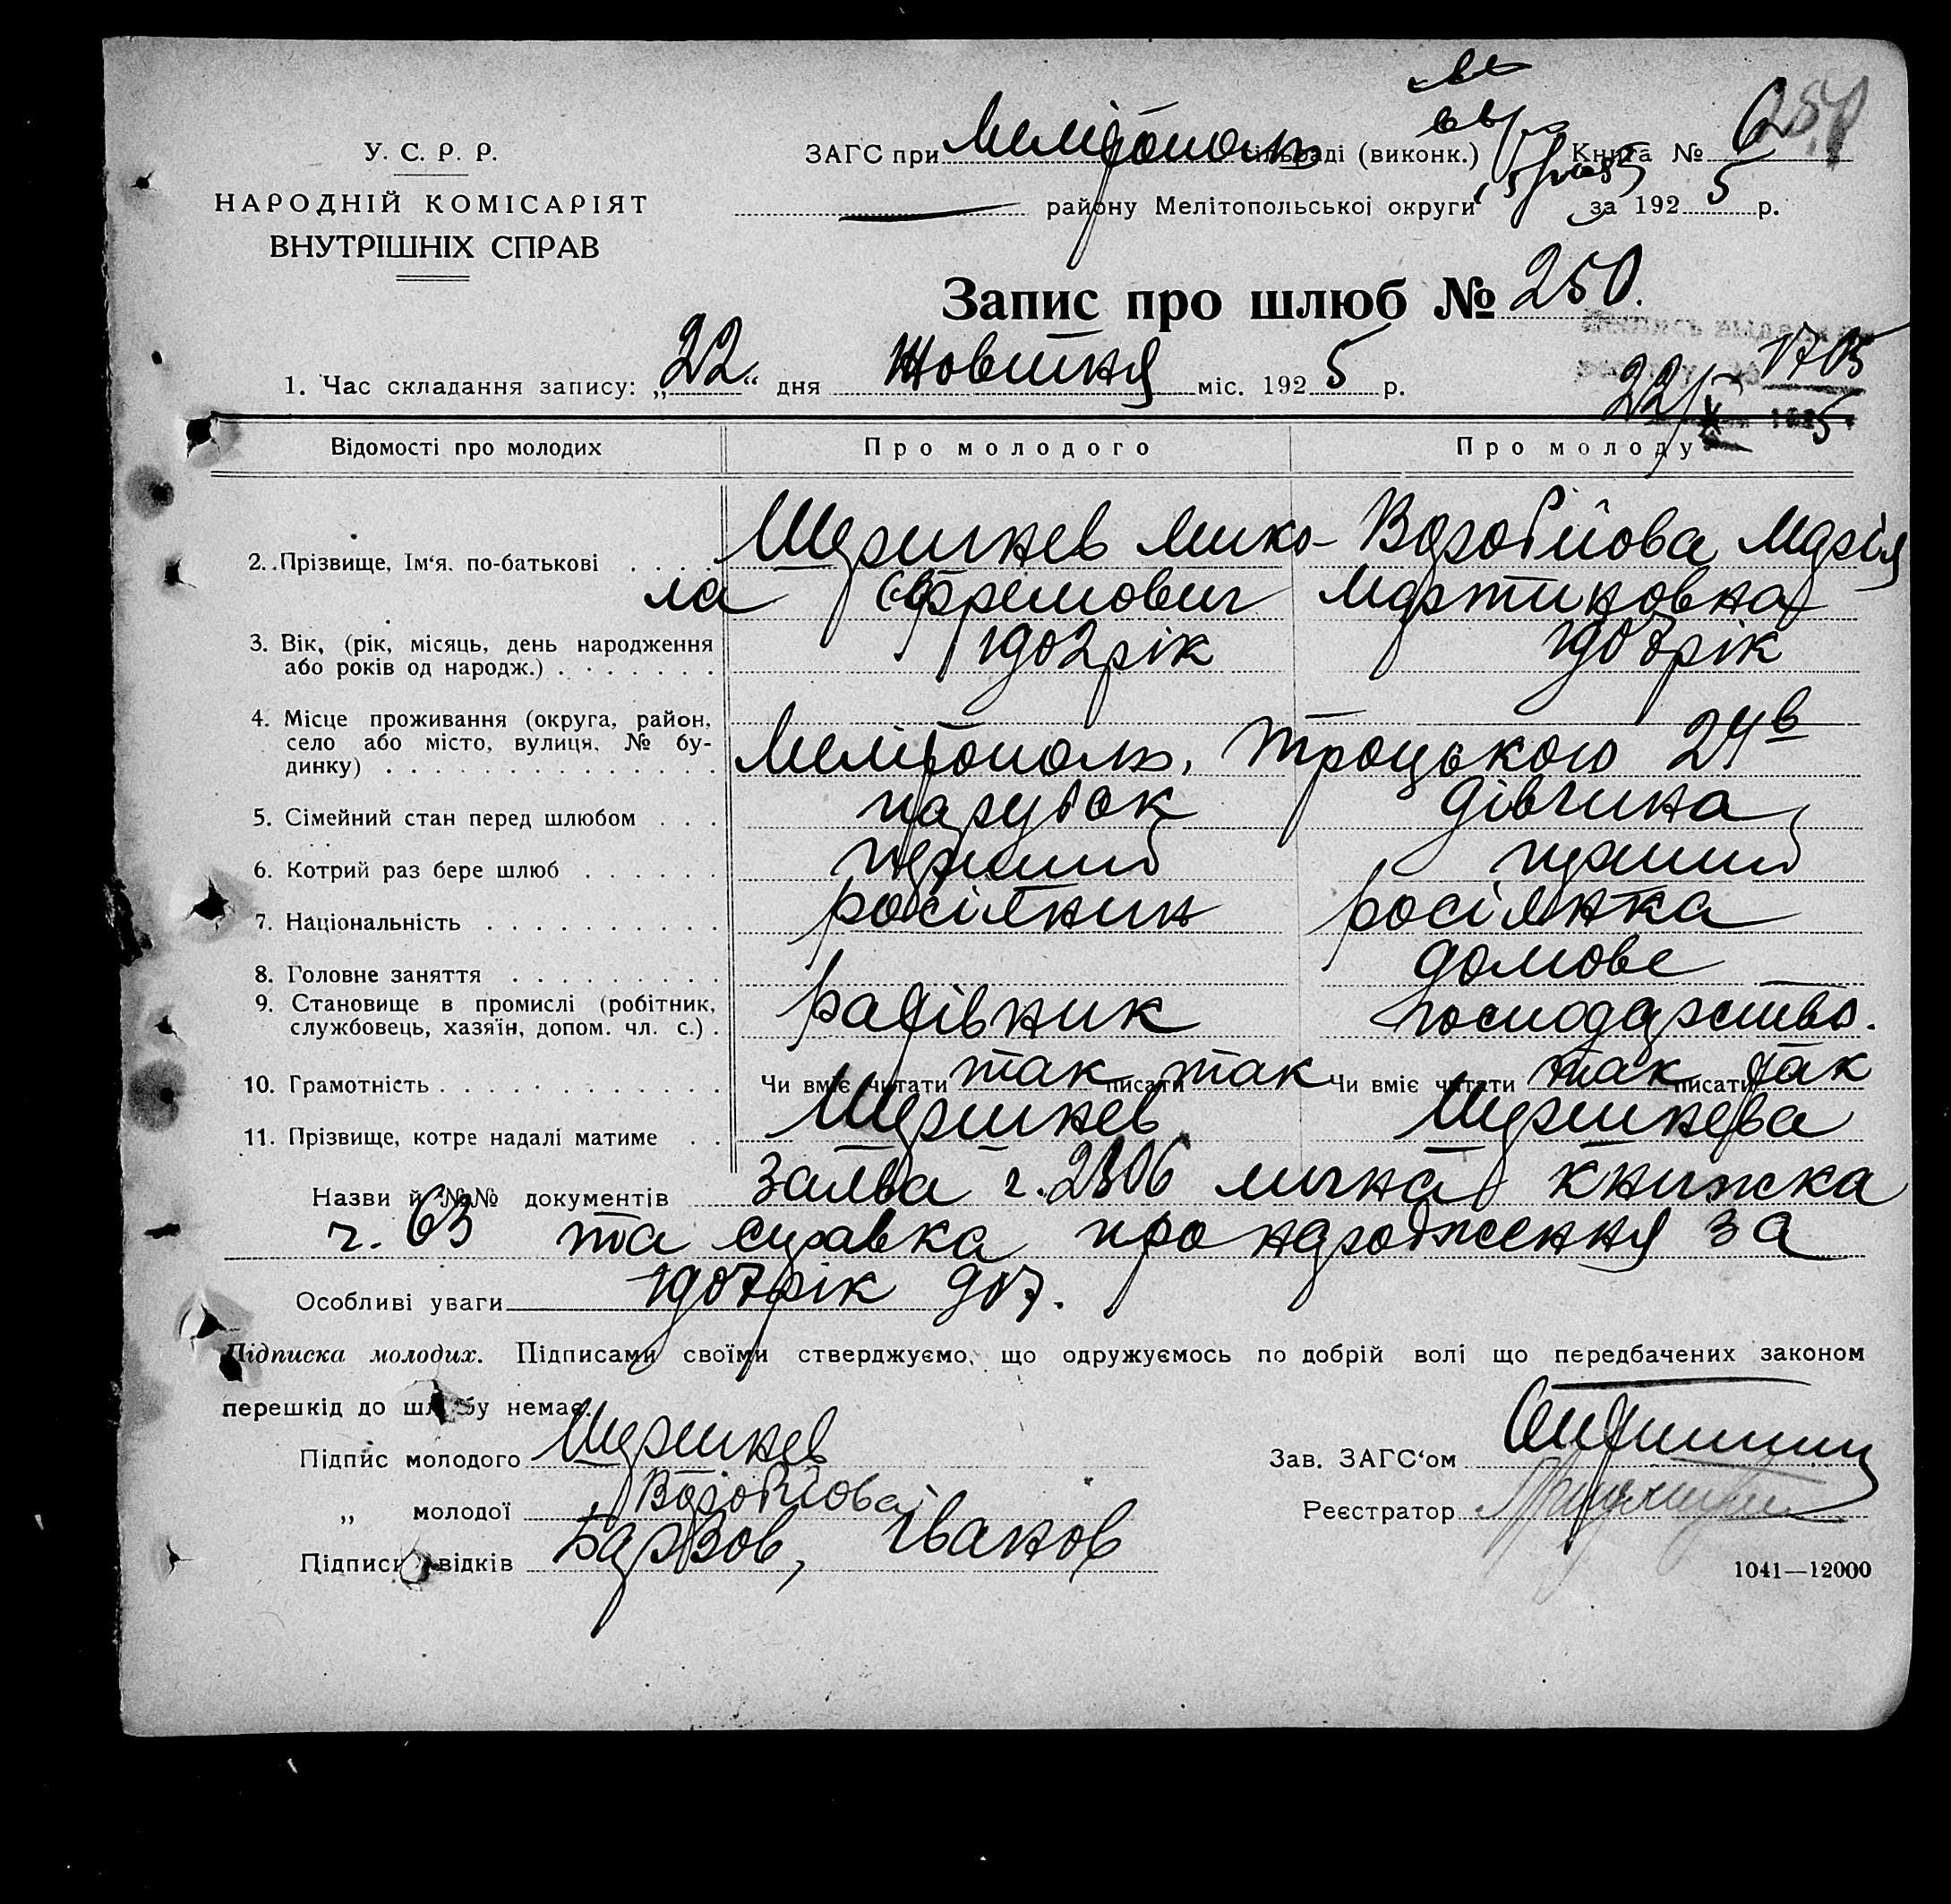 250
У. С. Р. Р.
НАРОДНІЙ КОМІСАРІЯТ
ВНУТРІШНІХ СПРАВ
ЗАГС при Мелітополь сільраді (виконк.) Книга № 6
району Мелітопольської округи за 1925 р.
Запис про шлюб № 250.
1. Час складання запису: „22“ дня Жовтня міс. 1925 р.
1705
22/X 1925
Відомості про молодих Про молодого Про молоду
2. Прізвище, Ім‘я, по-батькові . . . . Шершнев Мико- Воробйова Марія
ла Єфремович Мартиновна
3. Вік, (рік, місяць, день народження
або років од народж.) . . . . . . . 1902 рік 1907 рік
4. Місце проживання (округа, район,
село або місто, вулиця, № бу-
динку) . . . . . . . . . . . . . . Мелітополь, Троцького 24 в
5. Сімейний стан перед шлюбом . . . парубок дівчина
6. Котрий раз бере шлюб . . . . . . перший перший
7. Національність . . . . . . . . . . росіянин росіянка
8. Головне заняття . . . . . . . . . домове
9. Становище в промислі (робітник,
службовець, хазяїн, допом. чл. с.) . господарство.
10. Грамотність . . . . . . . . . . . . Чи вміє читати так писати так Чи вміє читати так писати так
11. Прізвище, котре надалі матиме . . Шершнев Шершнева
Назви й №№ документів заява ч. 2306 лична книжка
ч. 63 та справка про народження за
1907 рік 907.
Особливі уваги
Підписка молодих. Підписами своїми стверджуємо, що одружуємось по добрій волі що передбачених законом
перешкід до шлюбу немає.
Підпис молодого Шершнев
„ молодої Воробйова
Підписи свідків Барзов, Іванов
Зав. ЗАГС‘ом
Реєстратор
1041—12000